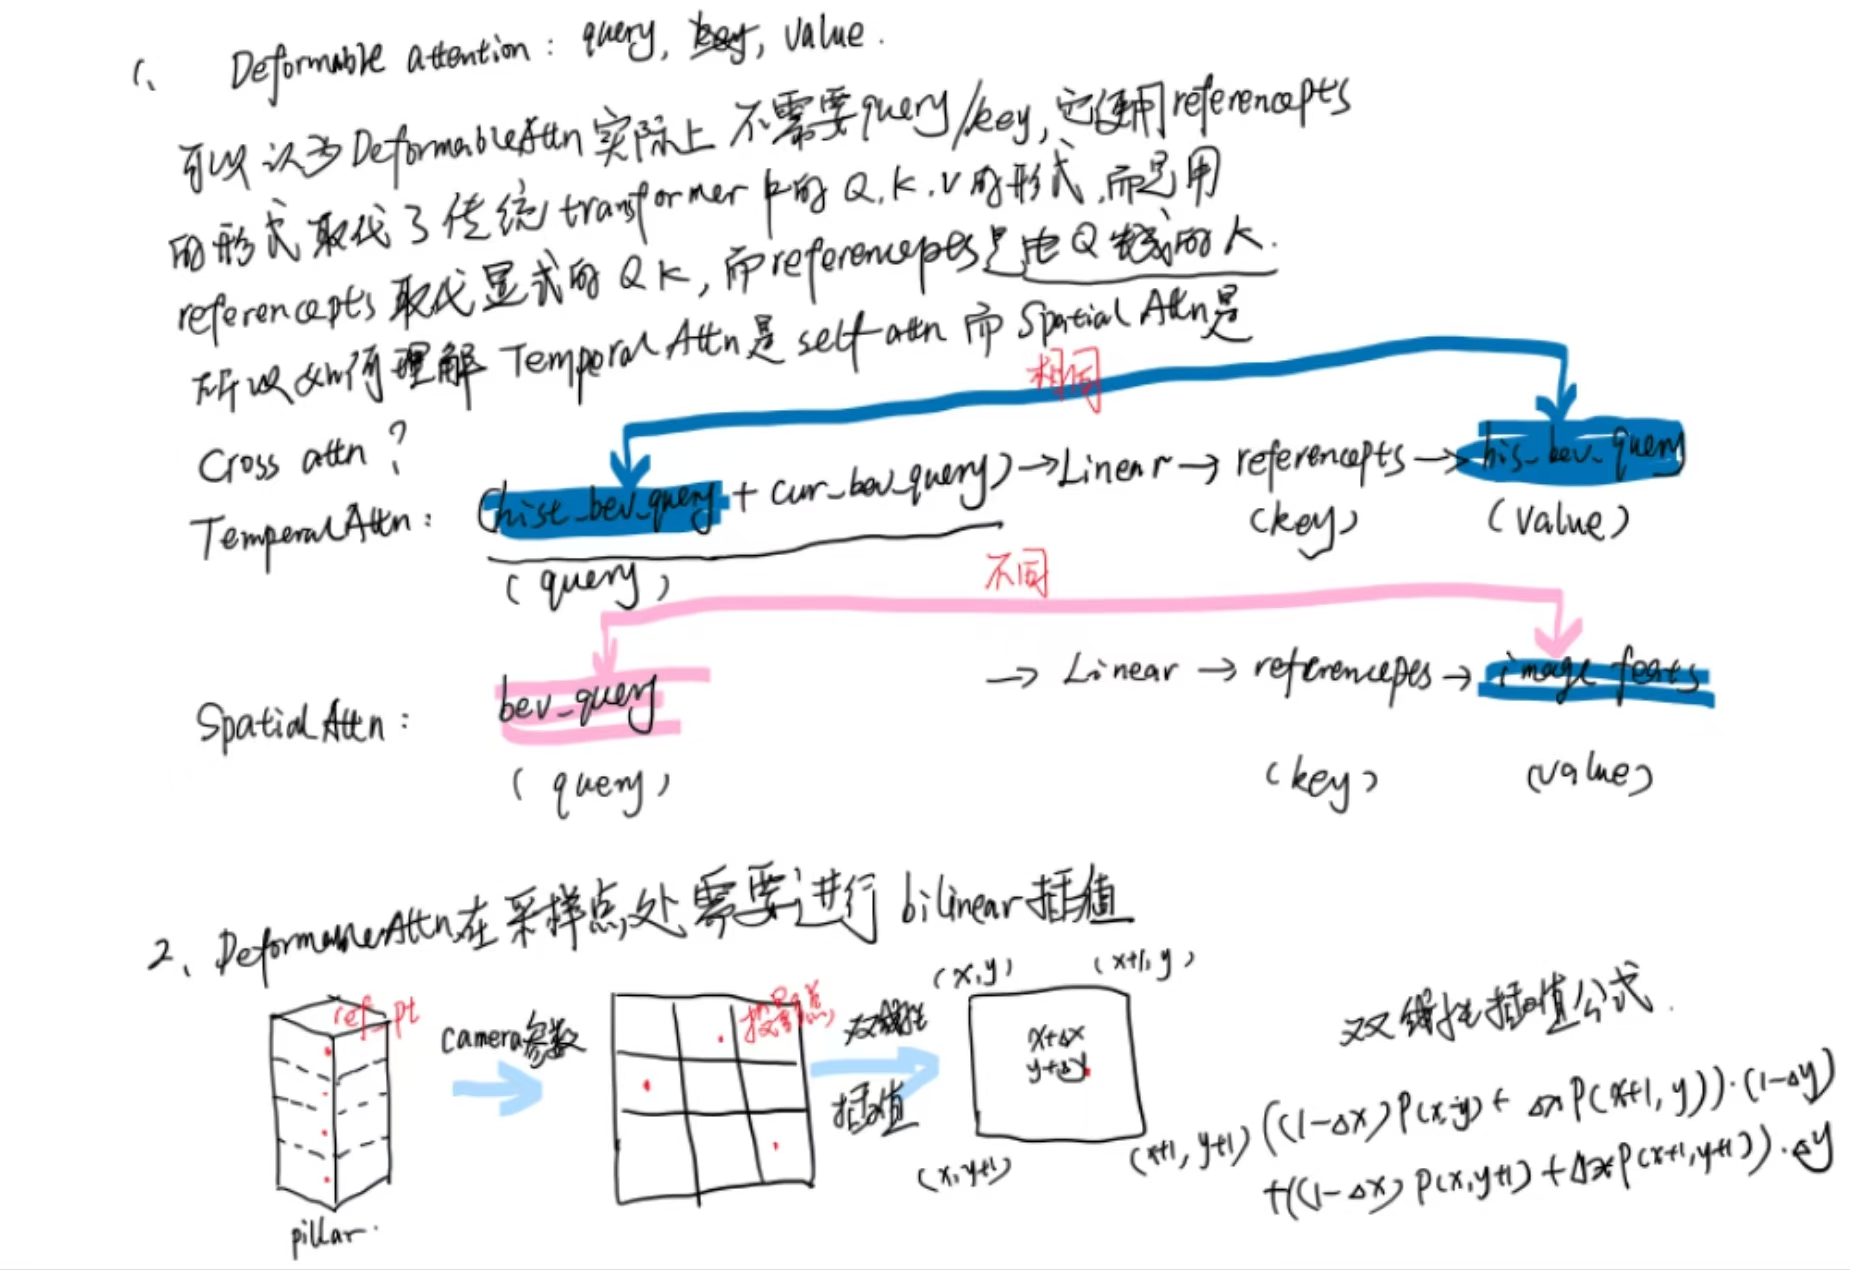 1、 Deformable attention : query, key, value.
可以认为DeformableAttn实际上 不需要query/key, 它使用referencepts
的形式取代了传统transformer中的Q.K.V的形式,而是用
referencepts取代显式的QK,而referencepts是由Q生成的K.
所以如何理解 Temporal Attn是 self-attn 而 Spatial Attn是
相同
Cross attn ?
TemperalAttn : (hist_bev_query + cur_bev_query) → Linear → referencepts → his_bev_query
(query) (key) (value)
不同
SpatialAttn : bev_query → Linear → referencepts → image feats
(query) (key) (value)
2、DeformableAttn在采样点处需要进行bilinear插值
(x,y) (x+1,y)
ref_pt camera参数 投影点 双线性 插值
x+Δx
y+Δy
双线性插值公式.
(x,y+1) (x+1,y+1)
((1-Δx)P(x,y)+ΔxP(x+1,y))·(1-Δy)
+((1-Δx)P(x,y+1)+ΔxP(x+1,y+1))·Δy
pillar.